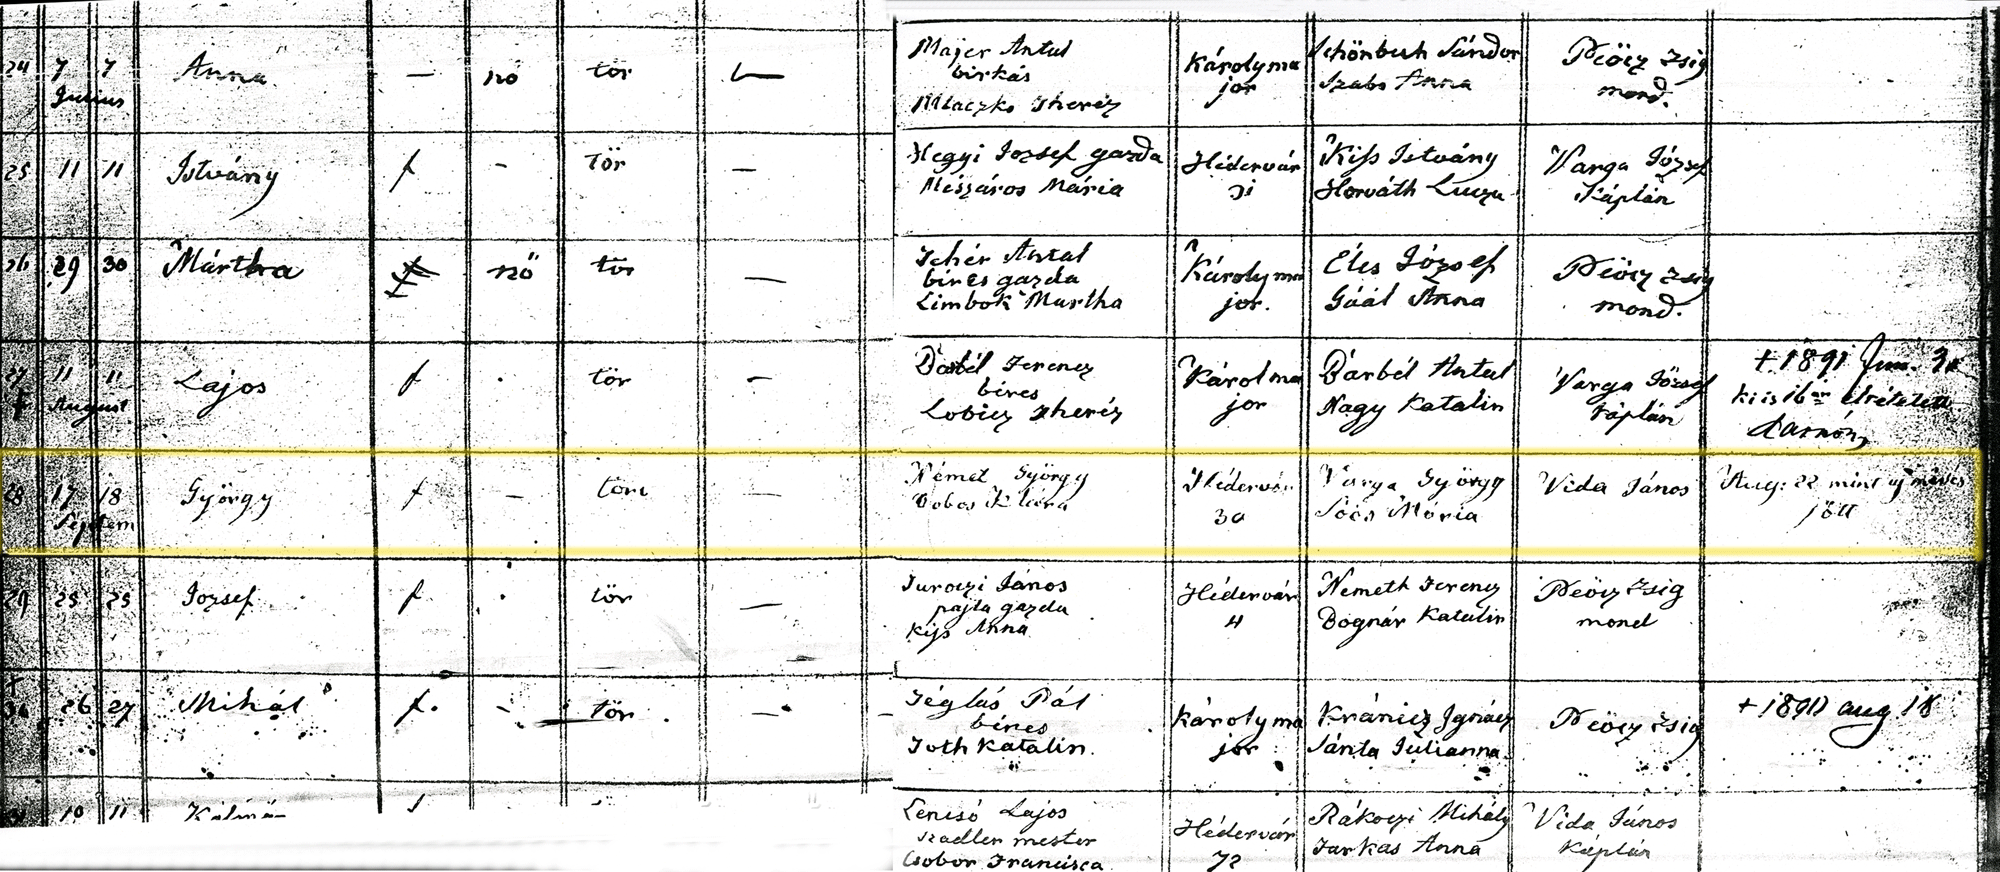 24 7 7 Anna — nő tör — Majer Antal Károlyma Schönbeck Sándor Péócz Zsig
Julius birkás jor Szabo Anna mond.
Mlaczko Theréz
25 11 11 István f - tör — Hegyi Jozsef gazda Hédervár Kiss István Varga József
Mészáros Mária 31 Horváth Lucza Káplán
26 29 30 Mártha nő tör — Fehér Antal Károlyma Éles József Péócz Zsig
béres gazda jor. Gáál Anna mond.
Limbok Martha
27 11 11 Lajos f tör — Barbél Ferencz Károlma Barbél Antal Varga József + 1891 Jun.
August béres jor Nagy Katalin káplán
Lobicz Theréz
28 17 18 György f — tör — Német György Hédervár Varga György Vida János Aug: 22 mint
Septem Dobos Klára 30 Soós Mária jött
29 25 25 Jozsef f tör — Turoczi János Hédervár Nemeth Ferencz Péócz Zsig
pajta gazda 4 Bognár Katalin mond
Kiss Anna
+ 30 26 27 Mihál f. - tör — Téglás Pál Károlyma Kránicz Ignácz Péócz Zsig + 1890 aug 18
béres jor Sánta Julianna
Toth Katalin.
10 11 Kálmá Lencsó Lajos Hédervár Rákoczi Mihály Vida János
szadler mester 72 Farkas Anna Káplán
Csobor Francisca